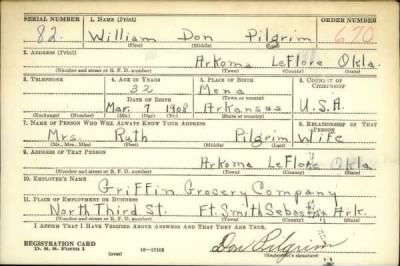 SERIAL NUMBER 1. NAME (Print) ORDER NUMBER
82. William Don Pilgrim 670
(First) (Middle) (Last)
2. ADDRESS (Print)
Arkoma LeFlore Okla.
(Number and street or R. F. D. number) (Town) (County) (State)
3. TELEPHONE 4. AGE IN YEARS 5. PLACE OF BIRTH 6. COUNTRY OF CITIZENSHIP
32 Mena
DATE OF BIRTH (Town or county)
Mar. 7 1908 Arkansas U.S.A.
(Exchange) (Number) (Mo.) (Day) (Yr.) (State or country)
7. NAME OF PERSON WHO WILL ALWAYS KNOW YOUR ADDRESS 8. RELATIONSHIP OF THAT PERSON
Mrs. Ruth Pilgrim Wife
(Mr., Mrs., Miss) (First) (Middle) (Last)
9. ADDRESS OF THAT PERSON
Arkoma LeFlore Okla
(Number and street or R. F. D. number) (Town) (County) (State)
10. EMPLOYER'S NAME
Griffin Grocery Company
11. PLACE OF EMPLOYMENT OR BUSINESS
North Third St. Ft. Smith Ark.
(Number and street or R. F. D. number) (Town) (County) (State)
I AFFIRM THAT I HAVE VERIFIED ABOVE ANSWERS AND THAT THEY ARE TRUE.
REGISTRATION CARD
D. S. S. Form 1 16-17105 Don Pilgrim
(Registrant's signature)